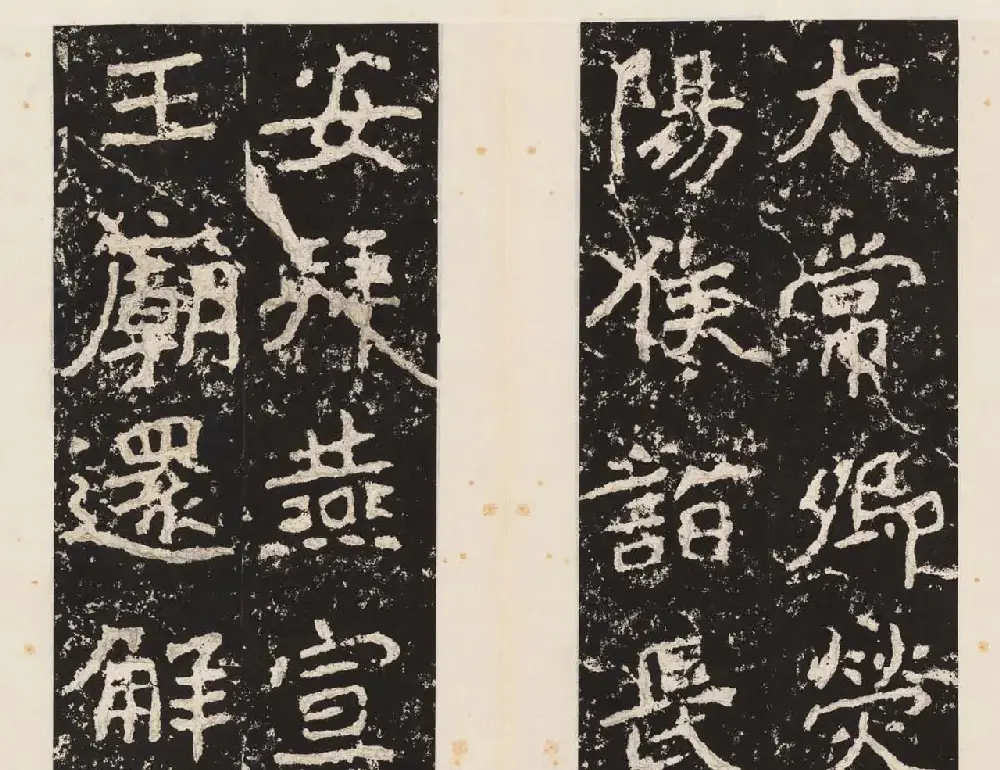 太常卿熒
陽侯詣長
安拜燕宣
王廟還解